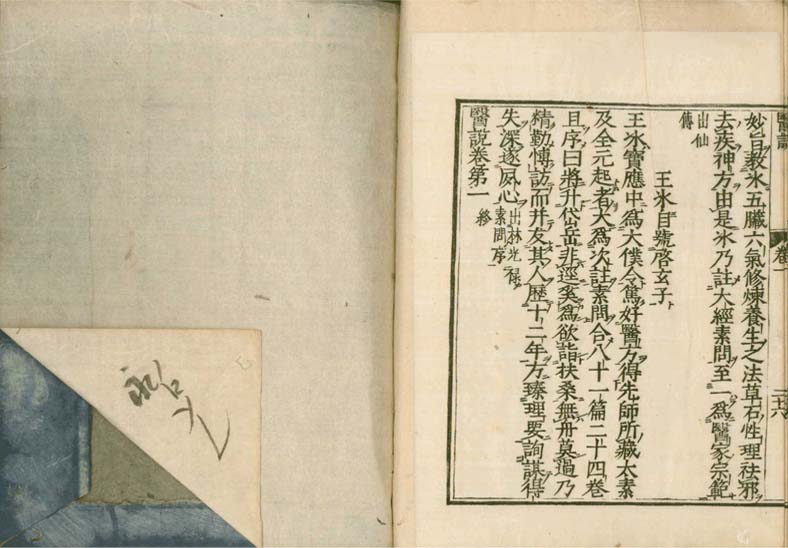 醫説 卷一 二十六
妙旨教氷五臓六氣修煉養生之法草石性理祛邪
去疾神方由是氷乃註大經素問至一爲醫家宗範
出仙
傳
王氷自號啓玄子
王氷寶應中爲大僕令篤好醫方得先師所藏太素
及全元起者大爲次註素問合八十一篇二十四卷
且序曰將升岱岳非逕奚爲欲詣扶桑無舟莫適乃
精勤愽訪而并友其人歴十二年方臻理要詢謀得
失深遂夙心
出林光禄
素問序
醫説卷第一 終